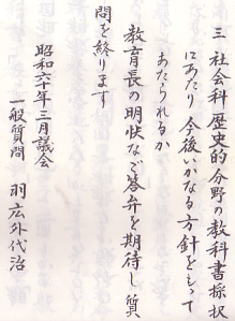 三 社会科歴史的分野の教科書採択
にあたり今後いかなる方針をもって
あたられるか
教育長の明快なご答弁を期待し質
問を終ります
昭和六十年三月議会
一般質問 羽広外代治